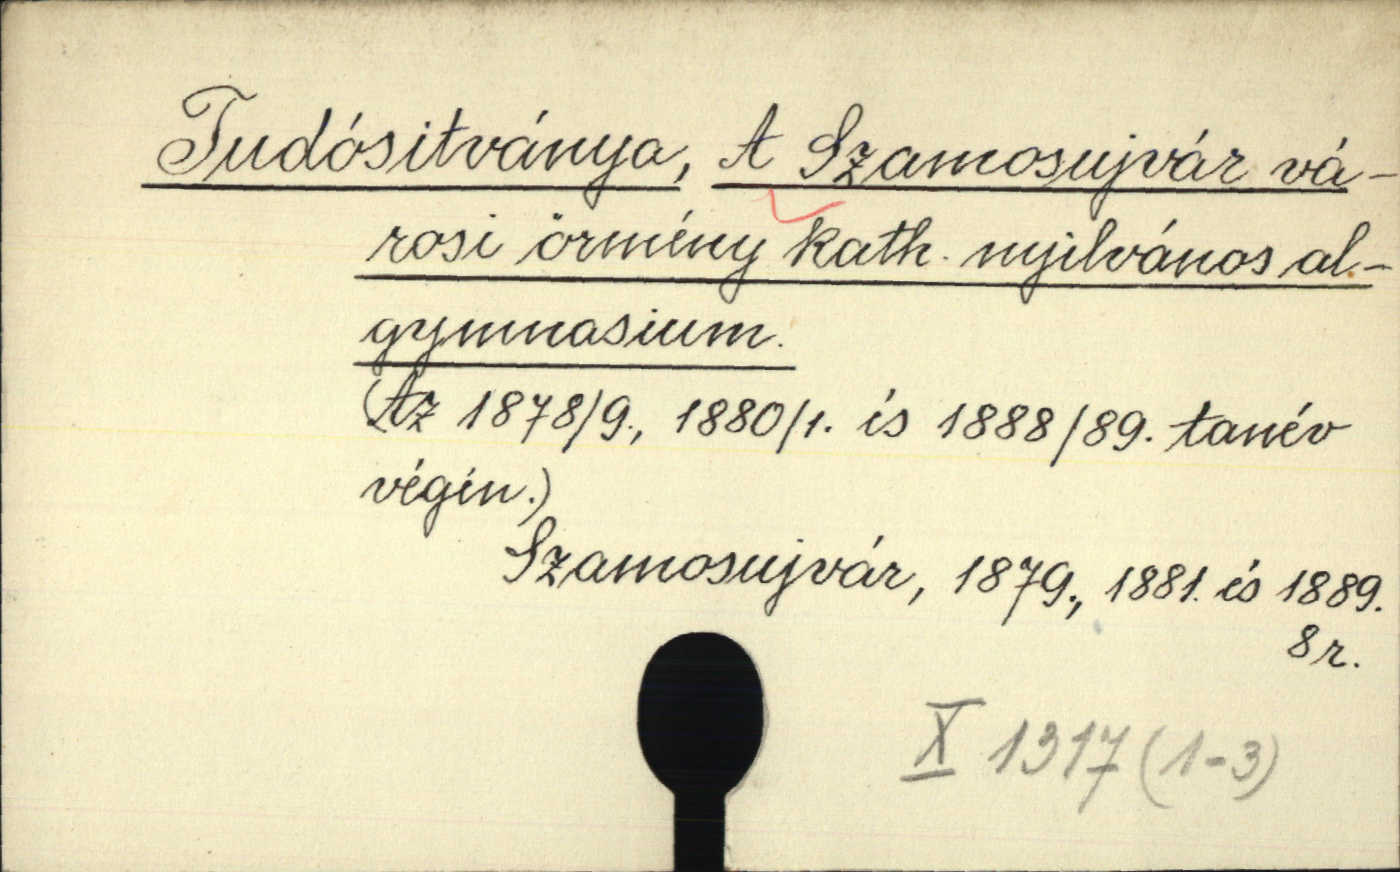 Tudósitványa, A Szamosujvár vá-
rosi örmény kath. nyilvános al-
gymnasium.
(Az 1878/9., 1880/1. és 1888/89. tanév
végén.)
Szamosujvár, 1879., 1881. és 1889.
8 r.
X 1317 (1-3)